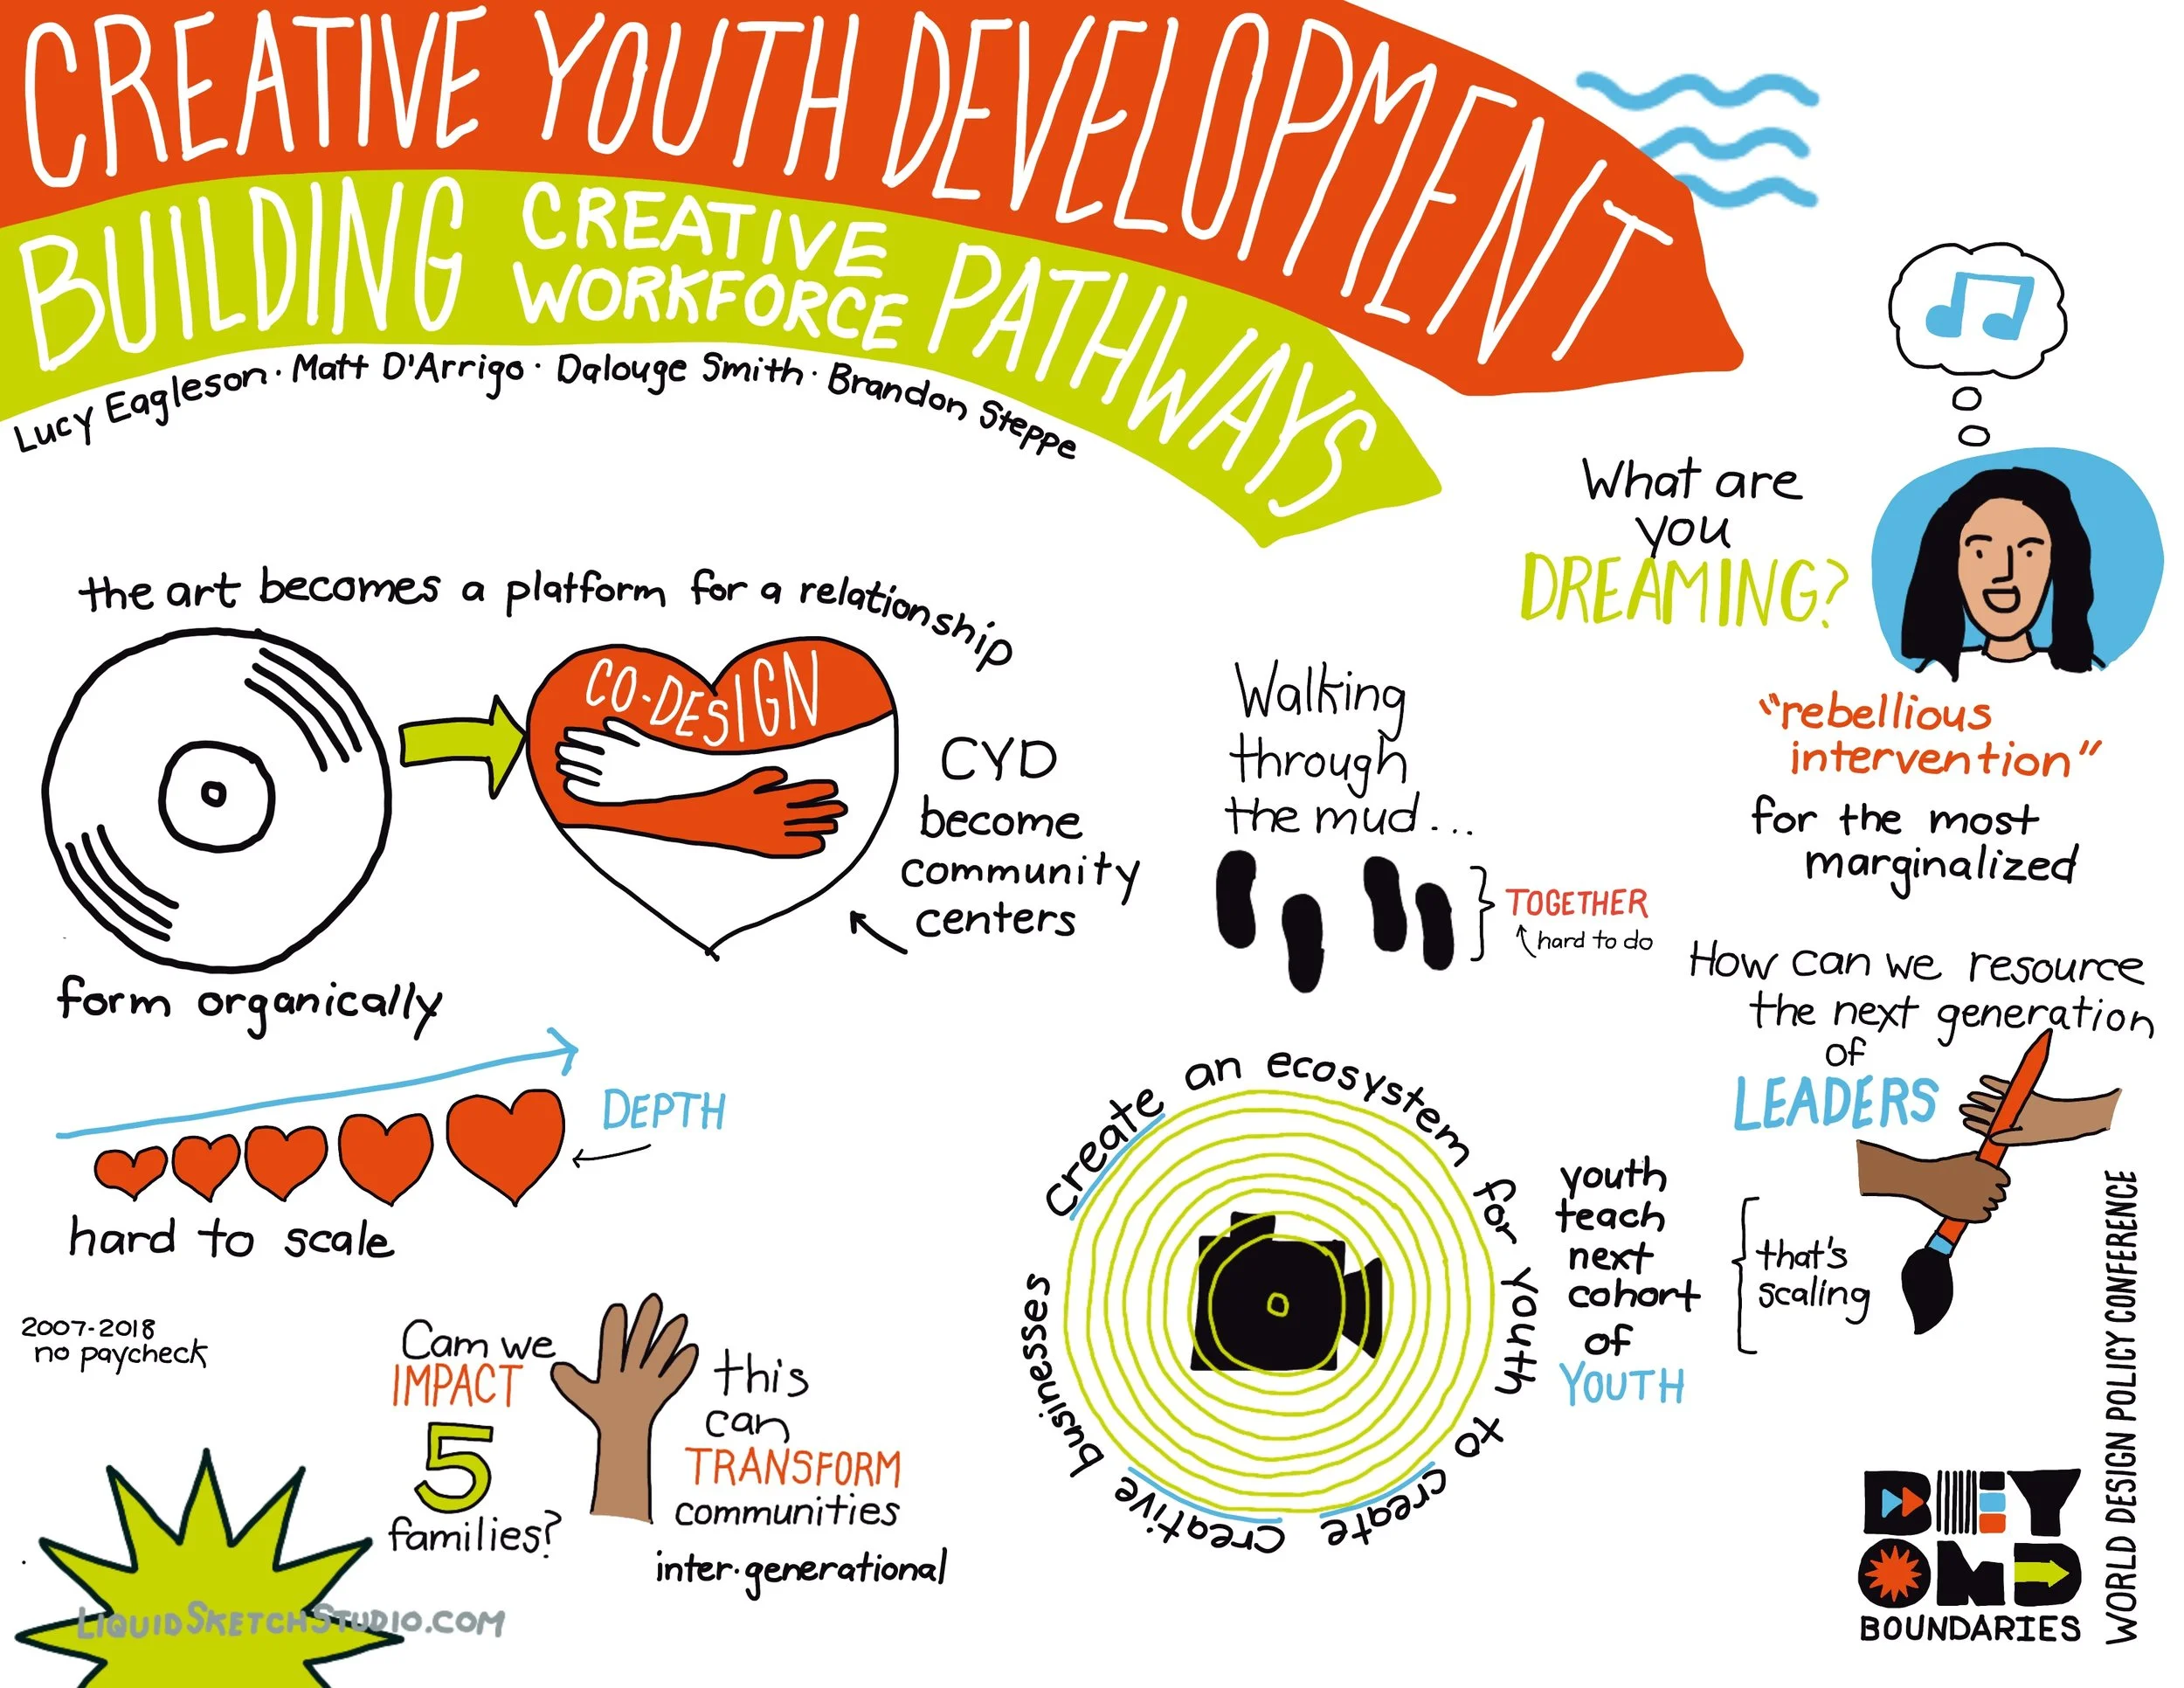 CREATIVE YOUTH DEVELOPMENT
BUILDING CREATIVE WORKFORCE PATHWAYS
Lucy Eagleson · Matt D'Arrigo · Dalouge Smith · Brandon Steppe
the art becomes a platform for a relationship
CO-DESIGN
CYD
become
community
centers
form organically
DEPTH
hard to scale
2007-2018
no paycheck
Cam we
IMPACT
5
families?
this
can
TRANSFORM
communities
inter·generational
LIQUIDSKETCHSTUDIO.COM
Walking
through
the mud...
TOGETHER
hard to do
create an ecosystem for youth to create creative businesses
What are
you
DREAMING?
"rebellious
intervention"
for the most
marginalized
How can we resource
the next generation
of
LEADERS
youth
teach
next
cohort
of
YOUTH
that's
scaling
BEY
OND
BOUNDARIES
WORLD DESIGN POLICY CONFERENCE